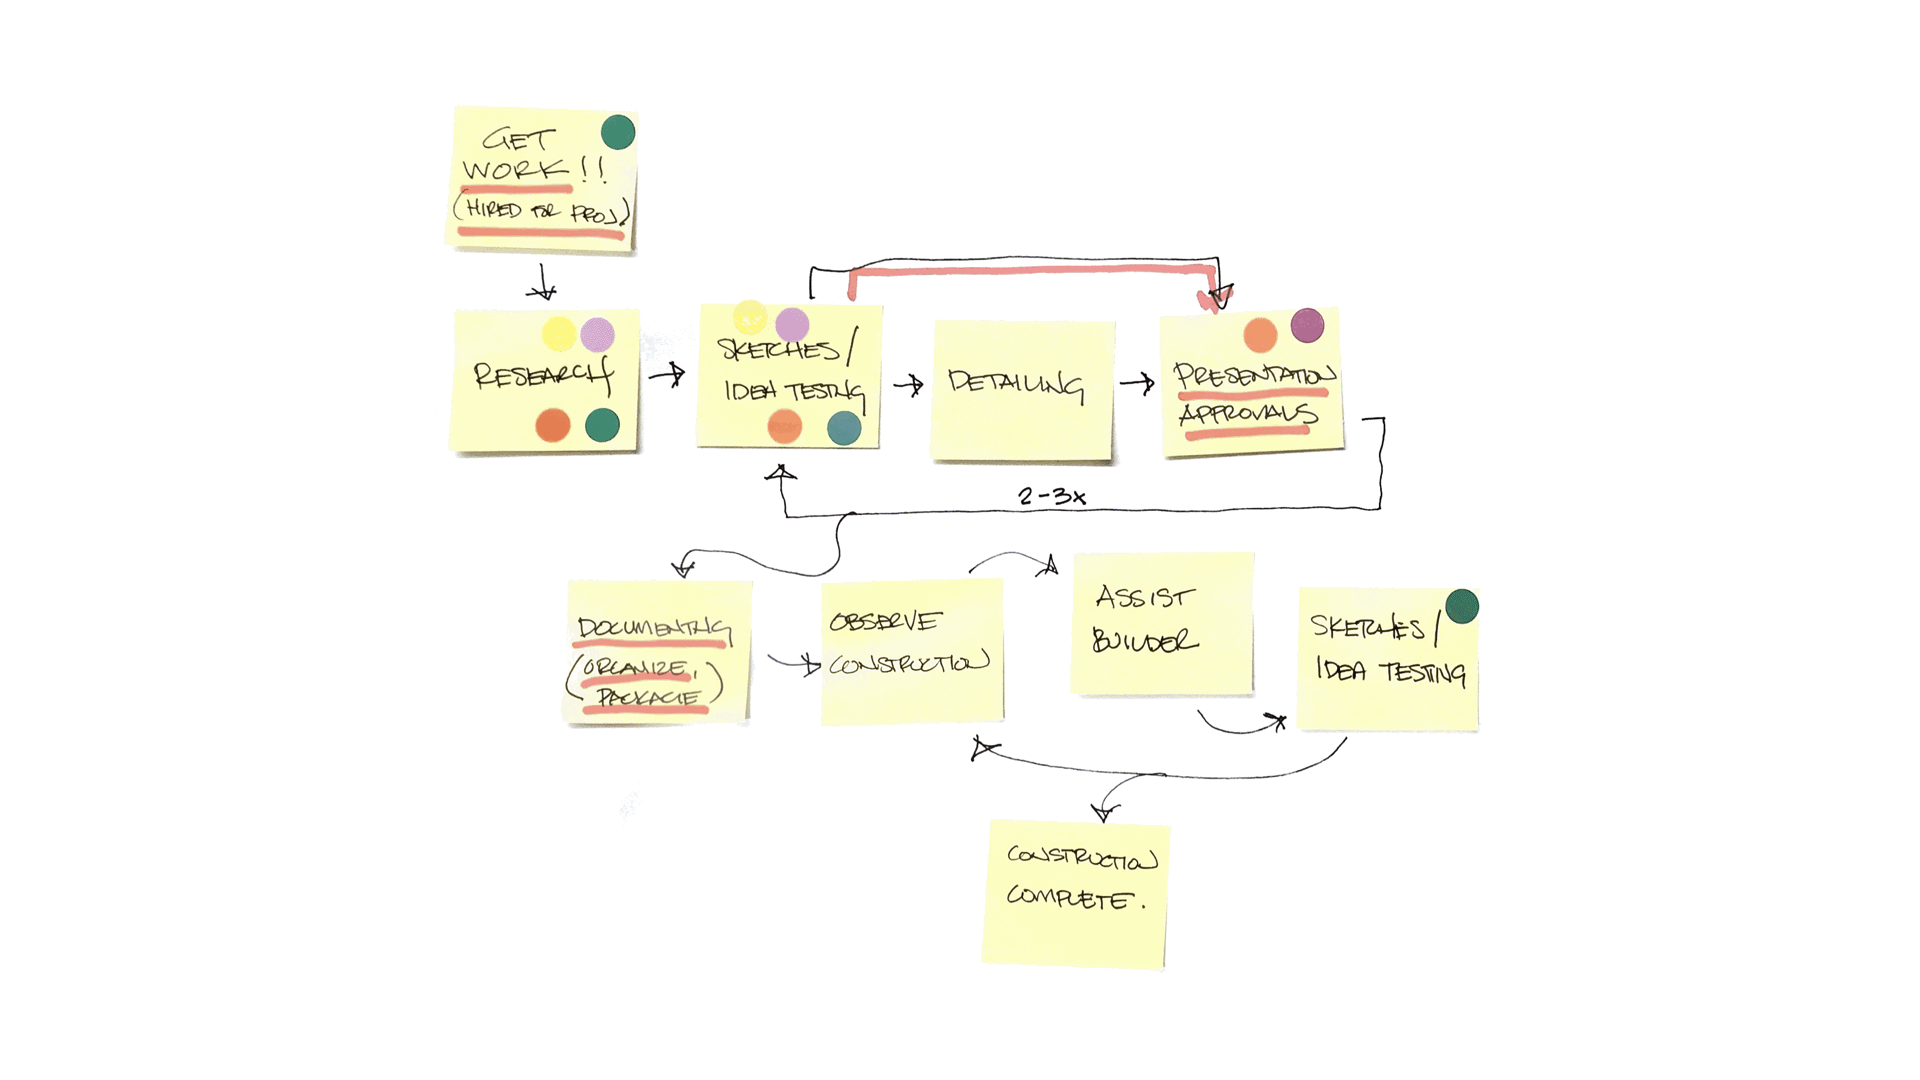 GET
WORK!!
(HIRED FOR PROJ)
RESEARCH
SKETCHES/
IDEA TESTING
DETAILING
PRESENTATION
APPROVALS
2-3x
DOCUMENTING
(ORGANIZE,
PACKAGE)
OBSERVE
CONSTRUCTION
ASSIST
BUILDER
SKETCHES/
IDEA TESTING
CONSTRUCTION
COMPLETE.